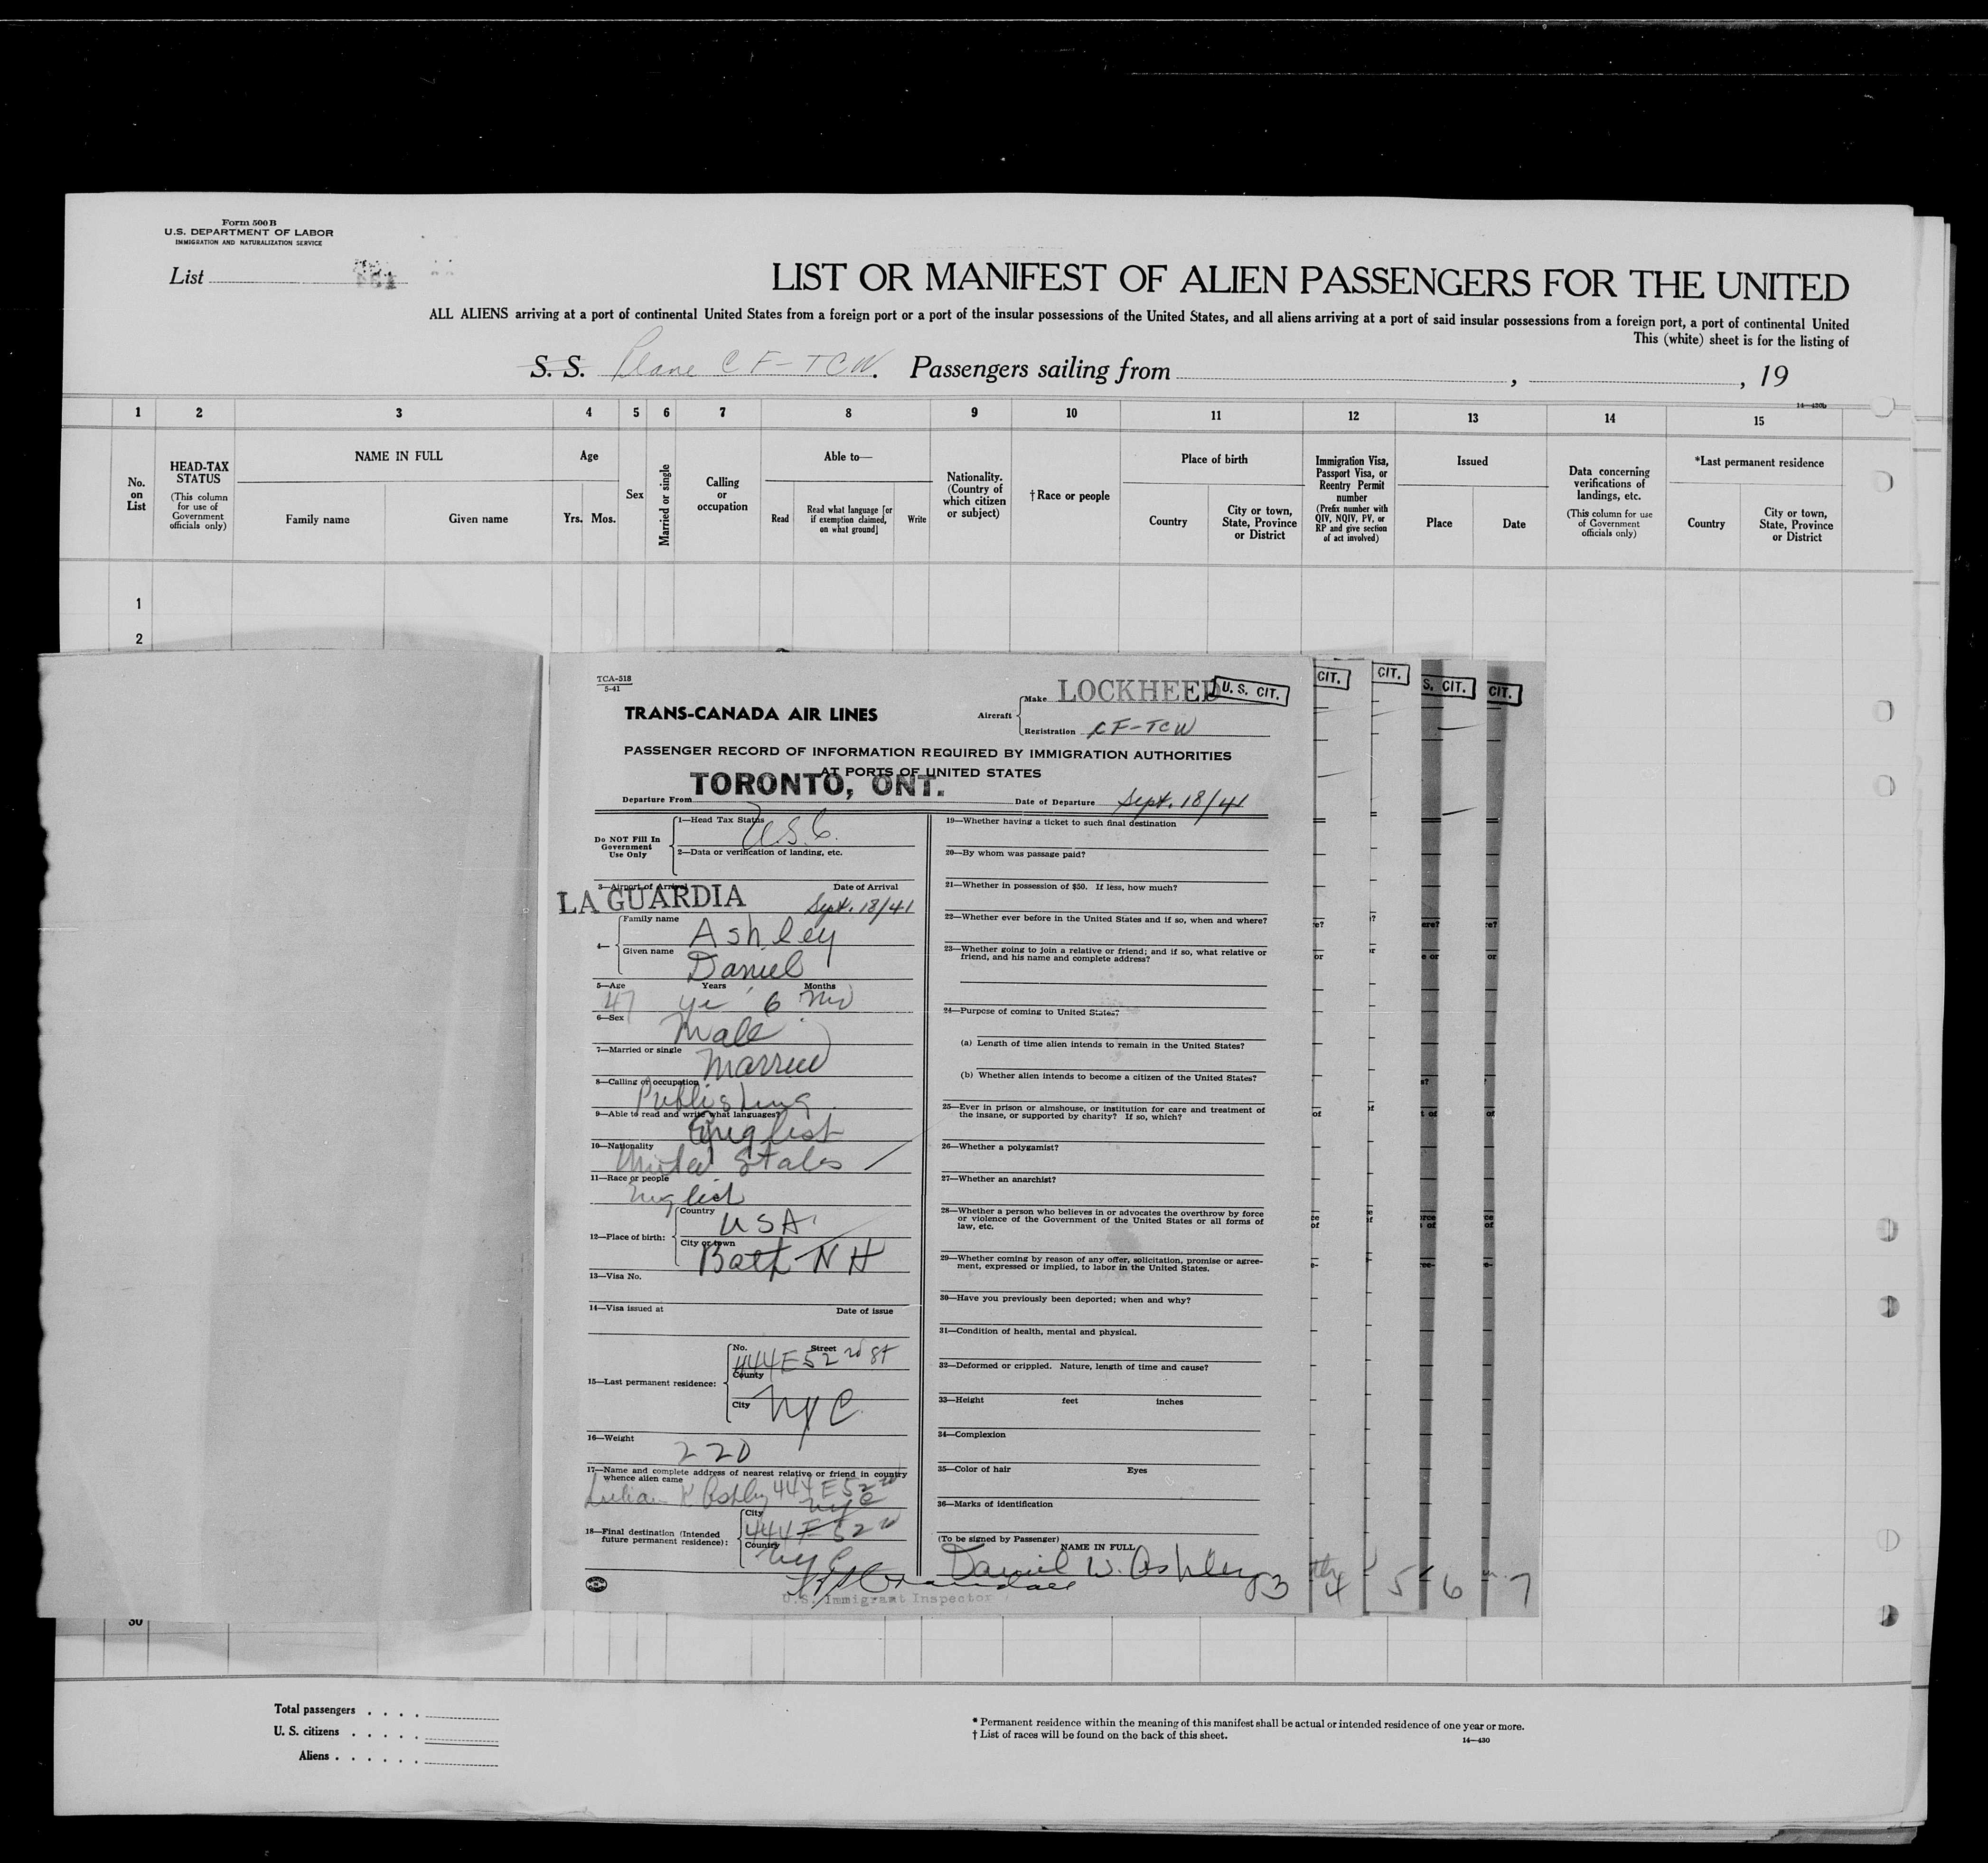 Form 500 B
U.S. DEPARTMENT OF LABOR
IMMIGRATION AND NATURALIZATION SERVICE
List
LIST OR MANIFEST OF ALIEN PASSENGERS FOR THE UNITED
ALL ALIENS arriving at a port of continental United States from a foreign port or a port of the insular possessions of the United States, and all aliens arriving at a port of said insular possessions from a foreign port, a port of continental United
This (white) sheet is for the listing of
S. S. Plane CF-TCW. Passengers sailing from , , 19
14—430b
1 2 3 4 5 6 7 8 9 10 11 12 13 14 15
No. on List
HEAD-TAX STATUS
(This column for use of Government officials only)
NAME IN FULL
Family name Given name
Age
Yrs. Mos.
Sex
Married or single
Calling or occupation
Able to—
Read
Read what language [or if exemption claimed, on what ground]
Write
Nationality. (Country of which citizen or subject)
† Race or people
Place of birth
Country
City or town, State, Province or District
Immigration Visa, Passport Visa, or Reentry Permit number
(Prefix number with QIV, NQIV, PV, or RP and give section of act involved)
Issued
Place Date
Data concerning verifications of landings, etc.
(This column for use of Government officials only)
*Last permanent residence
Country
City or town, State, Province or District
1
2
TCA-518
5-41
TRANS-CANADA AIR LINES
Aircraft
Make LOCKHEED
U. S. CIT.
Registration CF-TCW
PASSENGER RECORD OF INFORMATION REQUIRED BY IMMIGRATION AUTHORITIES
AT PORTS OF UNITED STATES
Departure From TORONTO, ONT. Date of Departure Sept. 18/41
Do NOT Fill In Government Use Only
1—Head Tax Status USC.
2—Data or verification of landing, etc.
3—Airport of Arrival Date of Arrival
LA GUARDIA Sept. 18/41
4—
Family name Ashley
Given name Daniel
5—Age Years Months
47 yr 6 mo
6—Sex Male
7—Married or single Married
8—Calling or occupation
Publishing
9—Able to read and write what languages?
English
10—Nationality
United States
11—Race or people
English
12—Place of birth:
Country USA
City or town Bath NH
13—Visa No.
14—Visa issued at Date of issue
15—Last permanent residence:
No. Street
444 E 52nd St
County
City NYC
16—Weight
220
17—Name and complete address of nearest relative or friend in country whence alien came
Ashley 444 E 52nd
NYC
18—Final destination (Intended future permanent residence):
City
444 E 52nd
Country
NYC
U.S. Immigrant Inspector
19—Whether having a ticket to such final destination
20—By whom was passage paid?
21—Whether in possession of $50. If less, how much?
22—Whether ever before in the United States and if so, when and where?
23—Whether going to join a relative or friend; and if so, what relative or
friend, and his name and complete address?
24—Purpose of coming to United States?
(a) Length of time alien intends to remain in the United States?
(b) Whether alien intends to become a citizen of the United States?
25—Ever in prison or almshouse, or institution for care and treatment of
the insane, or supported by charity? If so, which?
26—Whether a polygamist?
27—Whether an anarchist?
28—Whether a person who believes in or advocates the overthrow by force
or violence of the Government of the United States or all forms of
law, etc.
29—Whether coming by reason of any offer, solicitation, promise or agree-
ment, expressed or implied, to labor in the United States.
30—Have you previously been deported; when and why?
31—Condition of health, mental and physical.
32—Deformed or crippled. Nature, length of time and cause?
33—Height feet inches
34—Complexion
35—Color of hair Eyes
36—Marks of identification
(To be signed by Passenger)
NAME IN FULL
Daniel W. Ashley
3 4 5 6 7
CIT.
CIT.
S. CIT.
CIT.
30
Total passengers
U. S. citizens
Aliens
* Permanent residence within the meaning of this manifest shall be actual or intended residence of one year or more.
† List of races will be found on the back of this sheet.
14—430